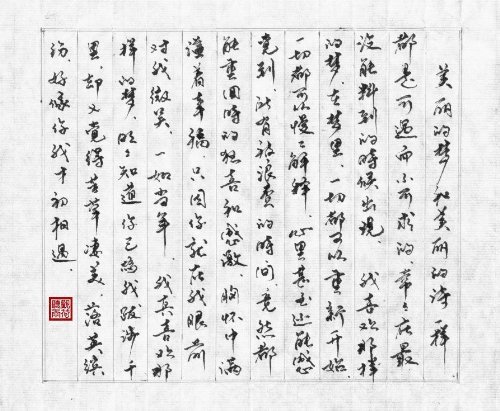 美丽的梦和美丽的诗一样
都是可遇而不可求的，常々在最
没能料到的时候出现。我喜欢那样
的梦，在梦里，一切都可以重新开始，
一切都可以慢々解释，心里甚至还能感
觉到，所有被浪费的时间竟然都
能重回时的狂喜和感激，胸怀中满
溢着幸福，只因你就在我眼前
对我微笑，一如当年，我真喜欢那
样的梦，明々知道你已为我跋涉千
里，却又觉得芳草凄美，落英缤
纷，好像你我才初相遇。